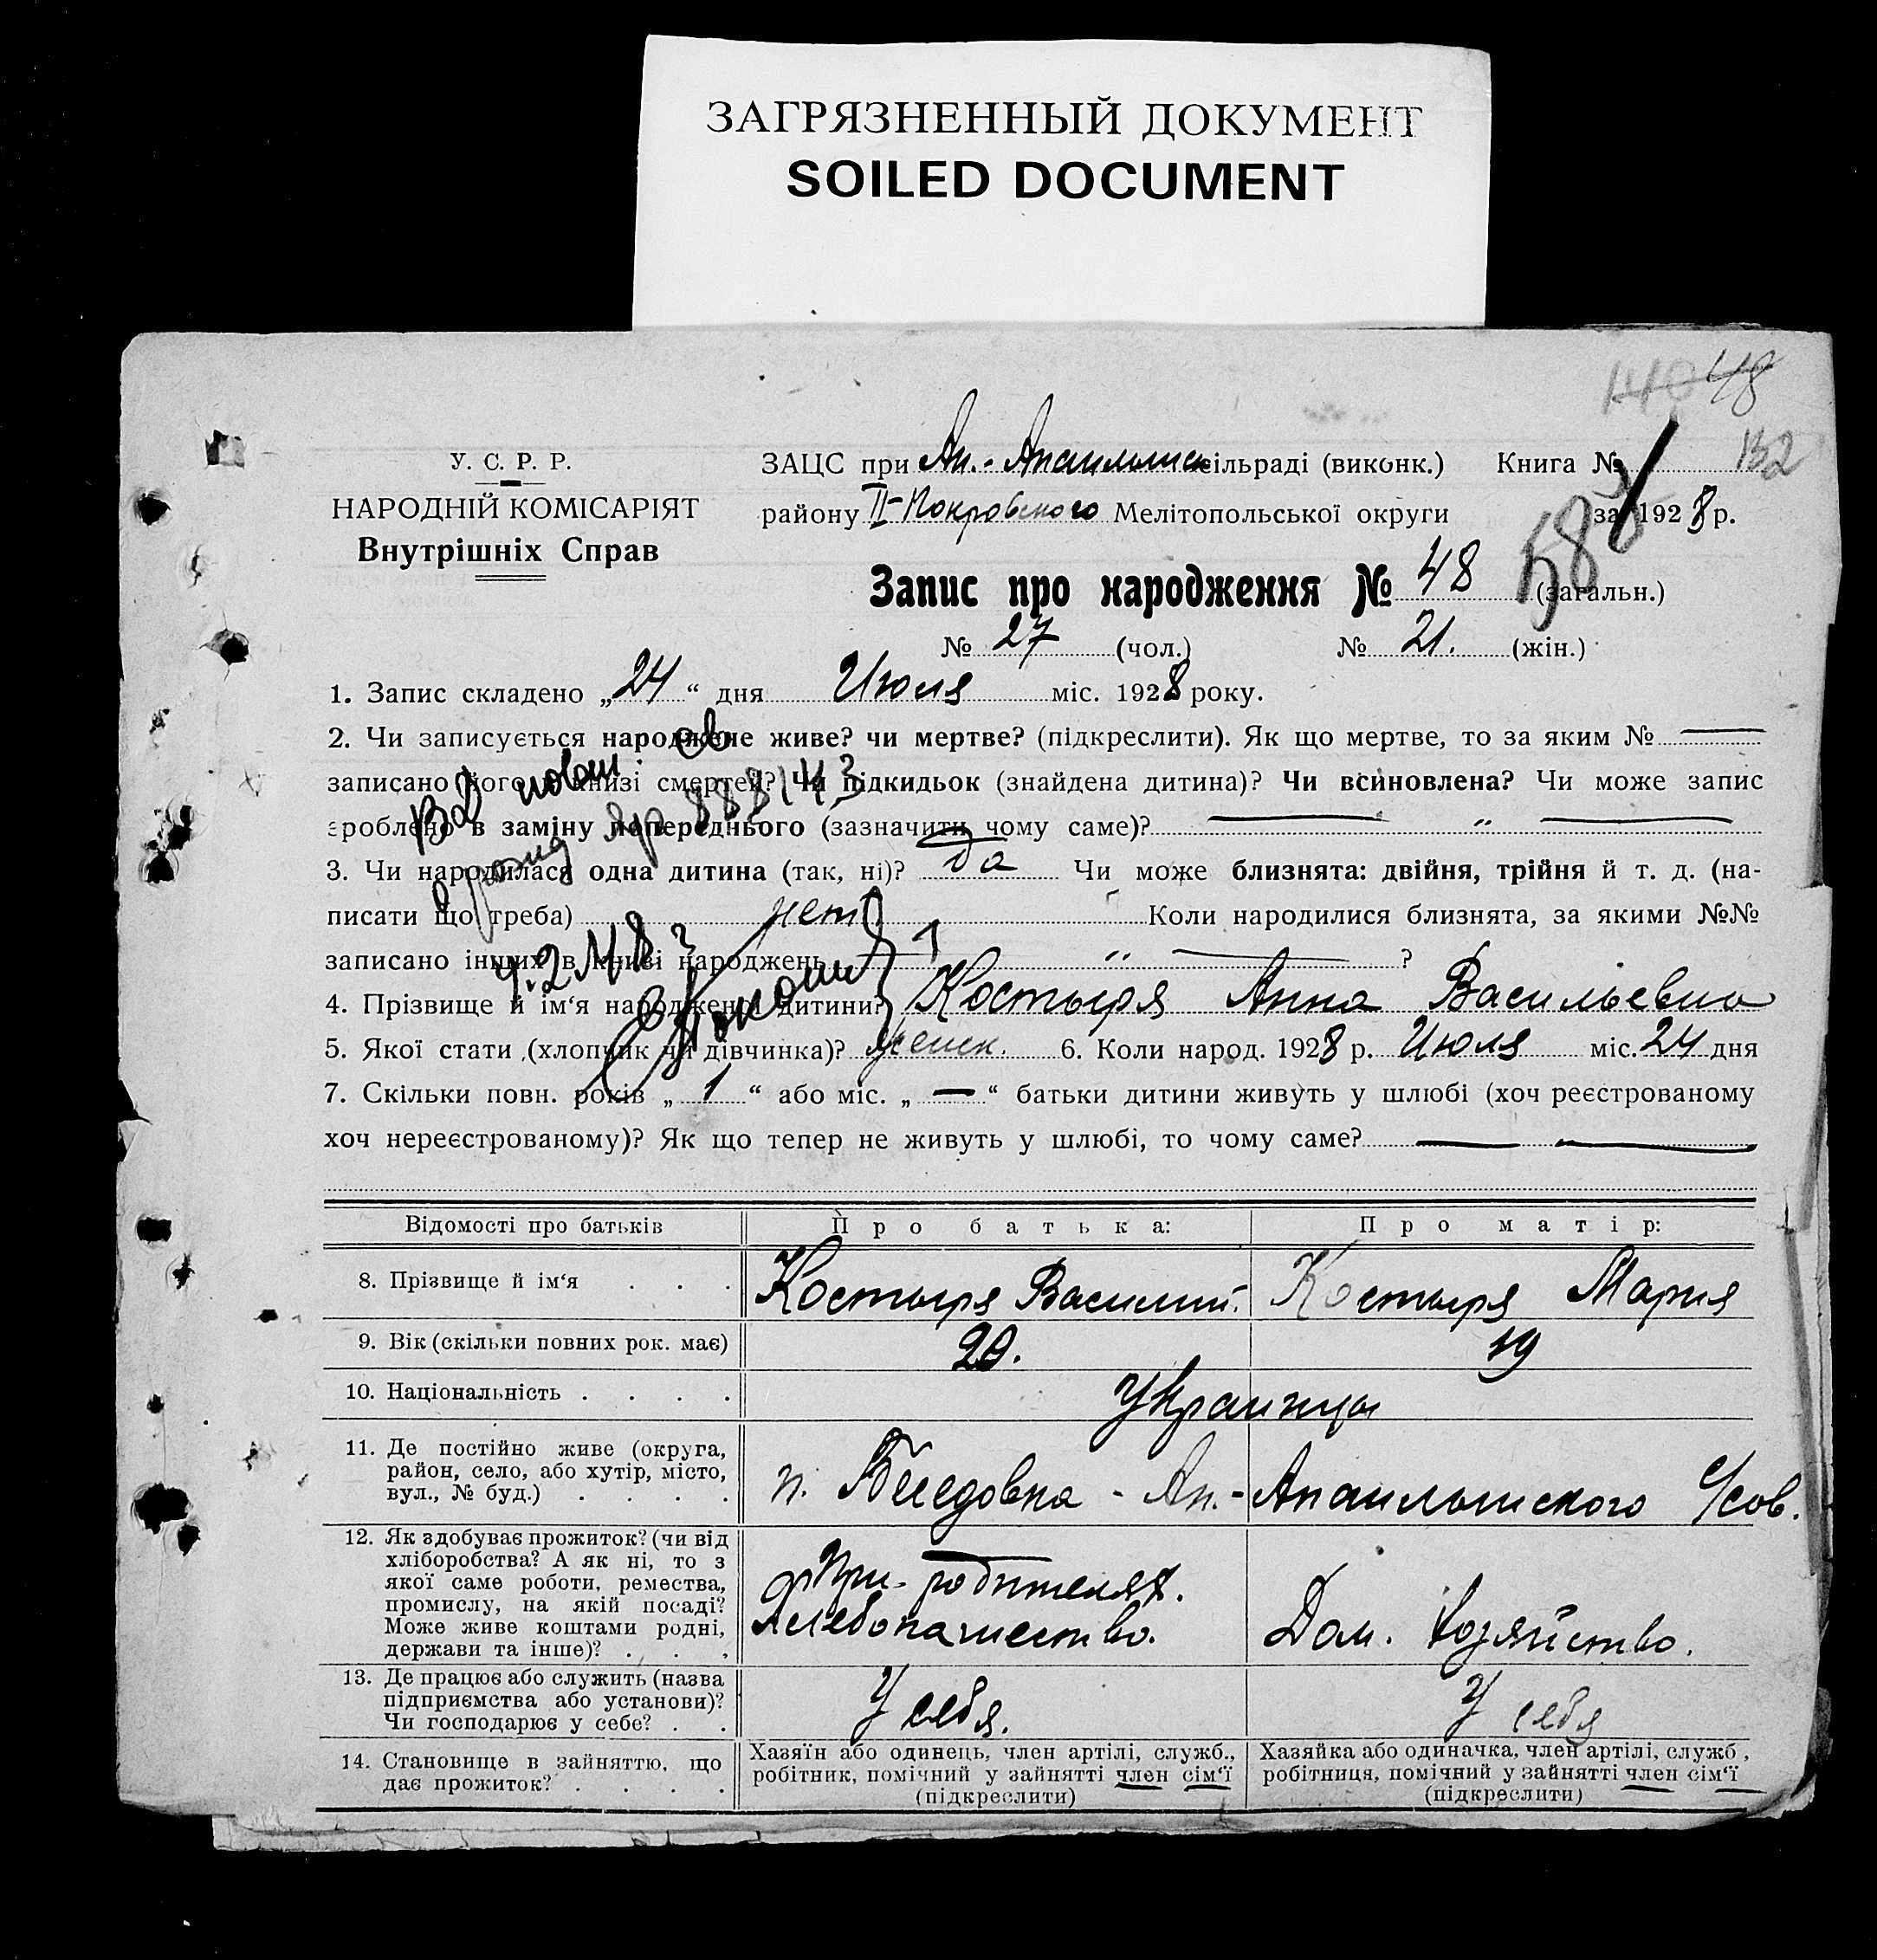 ЗАГРЯЗНЕННЫЙ ДОКУМЕНТ
SOILED DOCUMENT
140 48
132
У. С. Р. Р.
НАРОДНІЙ КОМІСАРІЯТ
Внутрішніх Справ
ЗАЦС при Ан.- сільраді (виконк.) Книга №
району II-Покровского Мелітопольської округи за 1928 р.
Запис про народження № 48 (загальн.)
№ 27 (чол.) № 21. (жін.)
1. Запис складено „24“ дня Июля міс. 1928 року.
2. Чи записується народжене живе? чи мертве? (підкреслити). Як що мертве, то за яким № —
записано його в книзі смертей? Чи підкидьок (знайдена дитина)? Чи всиновлена? Чи може запис
зроблено в заміну попереднього (зазначити чому саме)? — „ —
3. Чи народилася одна дитина (так, ні)? Да Чи може близнята: двійня, трійня й т. д. (на-
писати що треба) нет Коли народилися близнята, за якими №№
записано інших в книзі народжень — „ — ?
4. Прізвище й ім‘я народженої дитини? Костыря Анна Васильевна
5. Якої стати (хлопчик чи дівчинка)? женск. 6. Коли народ. 1928 р. Июля міс. 24 дня
7. Скільки повн. років „1“ або міс. „—“ батьки дитини живуть у шлюбі (хоч реєстрованому
хоч нереєстрованому)? Як що тепер не живуть у шлюбі, то чому саме? — —
Відомості про батьків Про батька: Про матір:
8. Прізвище й ім‘я . . . Костыря Василий. Костыря Мария
9. Вік (скільки повних рок. має) 20. 19
10. Національність . . . . Украинцы
11. Де постійно живе (округа,
район, село, або хутір, місто,
вул., № буд.) . . . .
п. Беседовка - Ан.- с/сов.
12. Як здобуває прожиток? (чи від
хліборобства? А як ні, то з
якої саме роботи, ремества,
промислу, на якій посаді?
Може живе коштами родні,
держави та інше)? . . .
При родителях.
Хлебопашество.
Дом. хозяйство.
13. Де працює або служить (назва
підприємства або установи)?
Чи господарює у себе? . .
У себя. У себя
14. Становище в зайняттю, що
дає прожиток? . . . .
Хазяїн або одинець, член артілі, служб.,
робітник, помічний у зайнятті член сім‘ї
(підкреслити)
Хазяйка або одиначка, член артілі, служб,
робітниця, помічний у зайнятті член сім‘ї
(підкреслити)